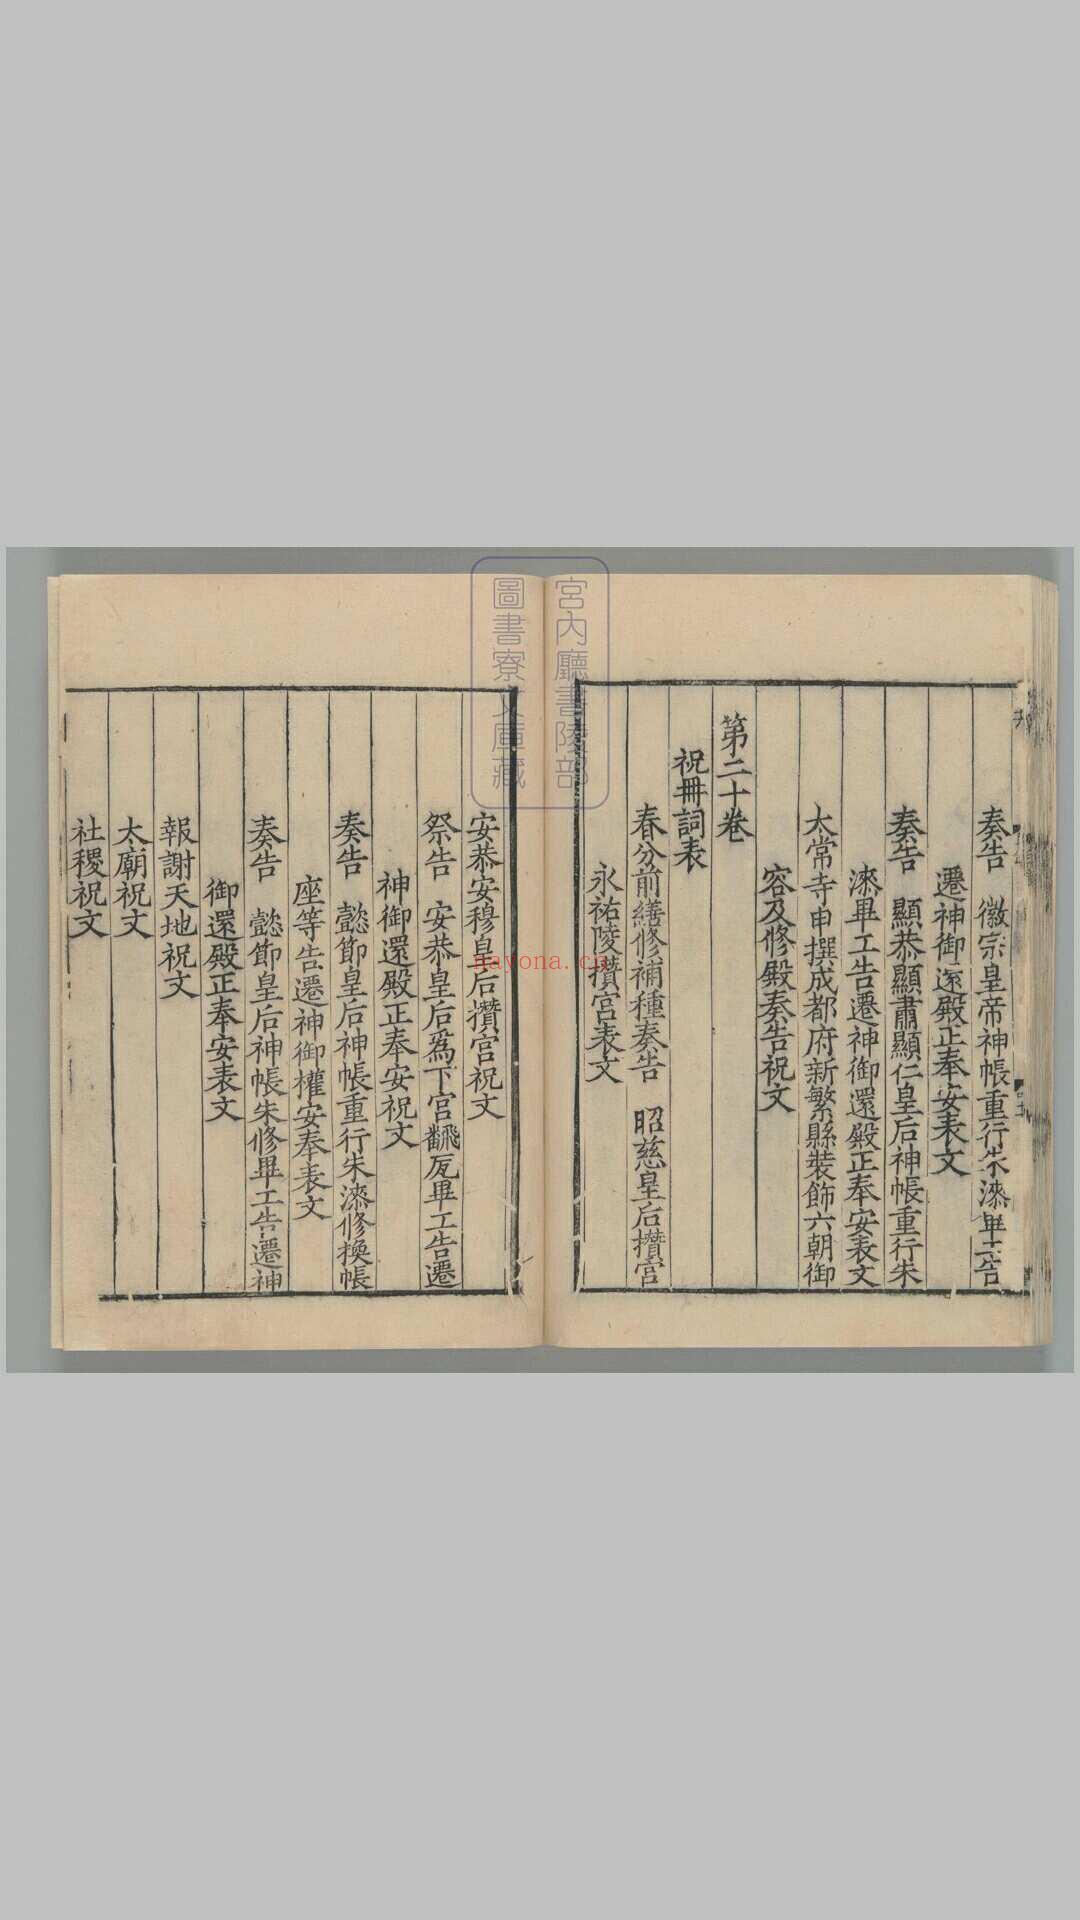 奏告 徽宗皇帝神帳重行朱漆畢工告
遷神御還殿正奉安表文
奏告 顯恭顯肅顯仁皇后神帳重行朱
漆畢工告遷神御還殿正奉安表文
太常寺申撰成都府新繁縣裝飾六朝御
容及修殿奏告祝文
第二十卷
祝冊詞表
春分前繕修補種奏告 昭慈皇后攢宮
永祐陵攢宮表文
安恭安穆皇后攢宮祝文
祭告 安恭皇后爲下宮飜瓦畢工告遷
神御還殿正奉安祝文
奏告 懿節皇后神帳重行朱漆修換帳
座等告遷神御權安奉表文
奏告 懿節皇后神帳朱修畢工告遷神
御還殿正奉安表文
報謝天地祝文
太廟祝文
社稷祝文
宮內廳書陵部
圖書寮文庫藏
nayona.cn